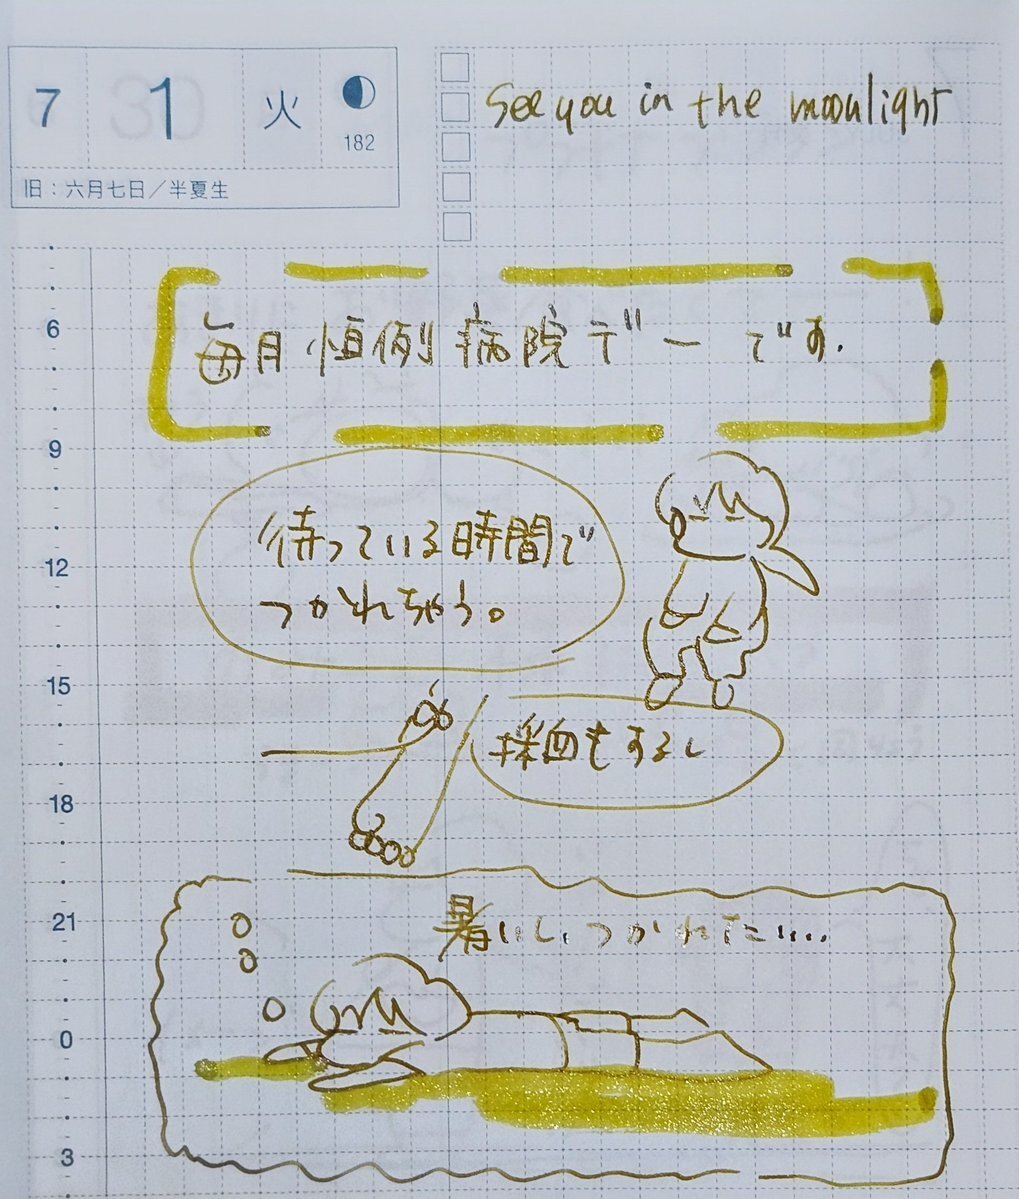 7 1 火
182
旧：六月七日／半夏生
See you in the moonlight
毎月恒例病院デーです.
待っている時間で
つかれちゃう。
採血もするし
暑いし、つかれた....
6
9
12
15
18
21
0
3